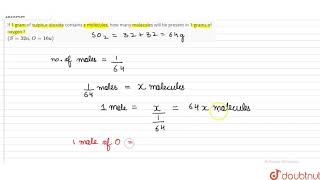 If 1 gram of sulphur dioxide contains x molecules, how many molecules will be present in 1 grams of
oxygen ?
(S = 32u, O = 16u)
SO2 = 32 + 32 = 64g
no. of moles = 1/64
1/64 moles = x molecules
1 mole = x/(1/64) = 64 x molecules
1 mole of O =
doubtnut